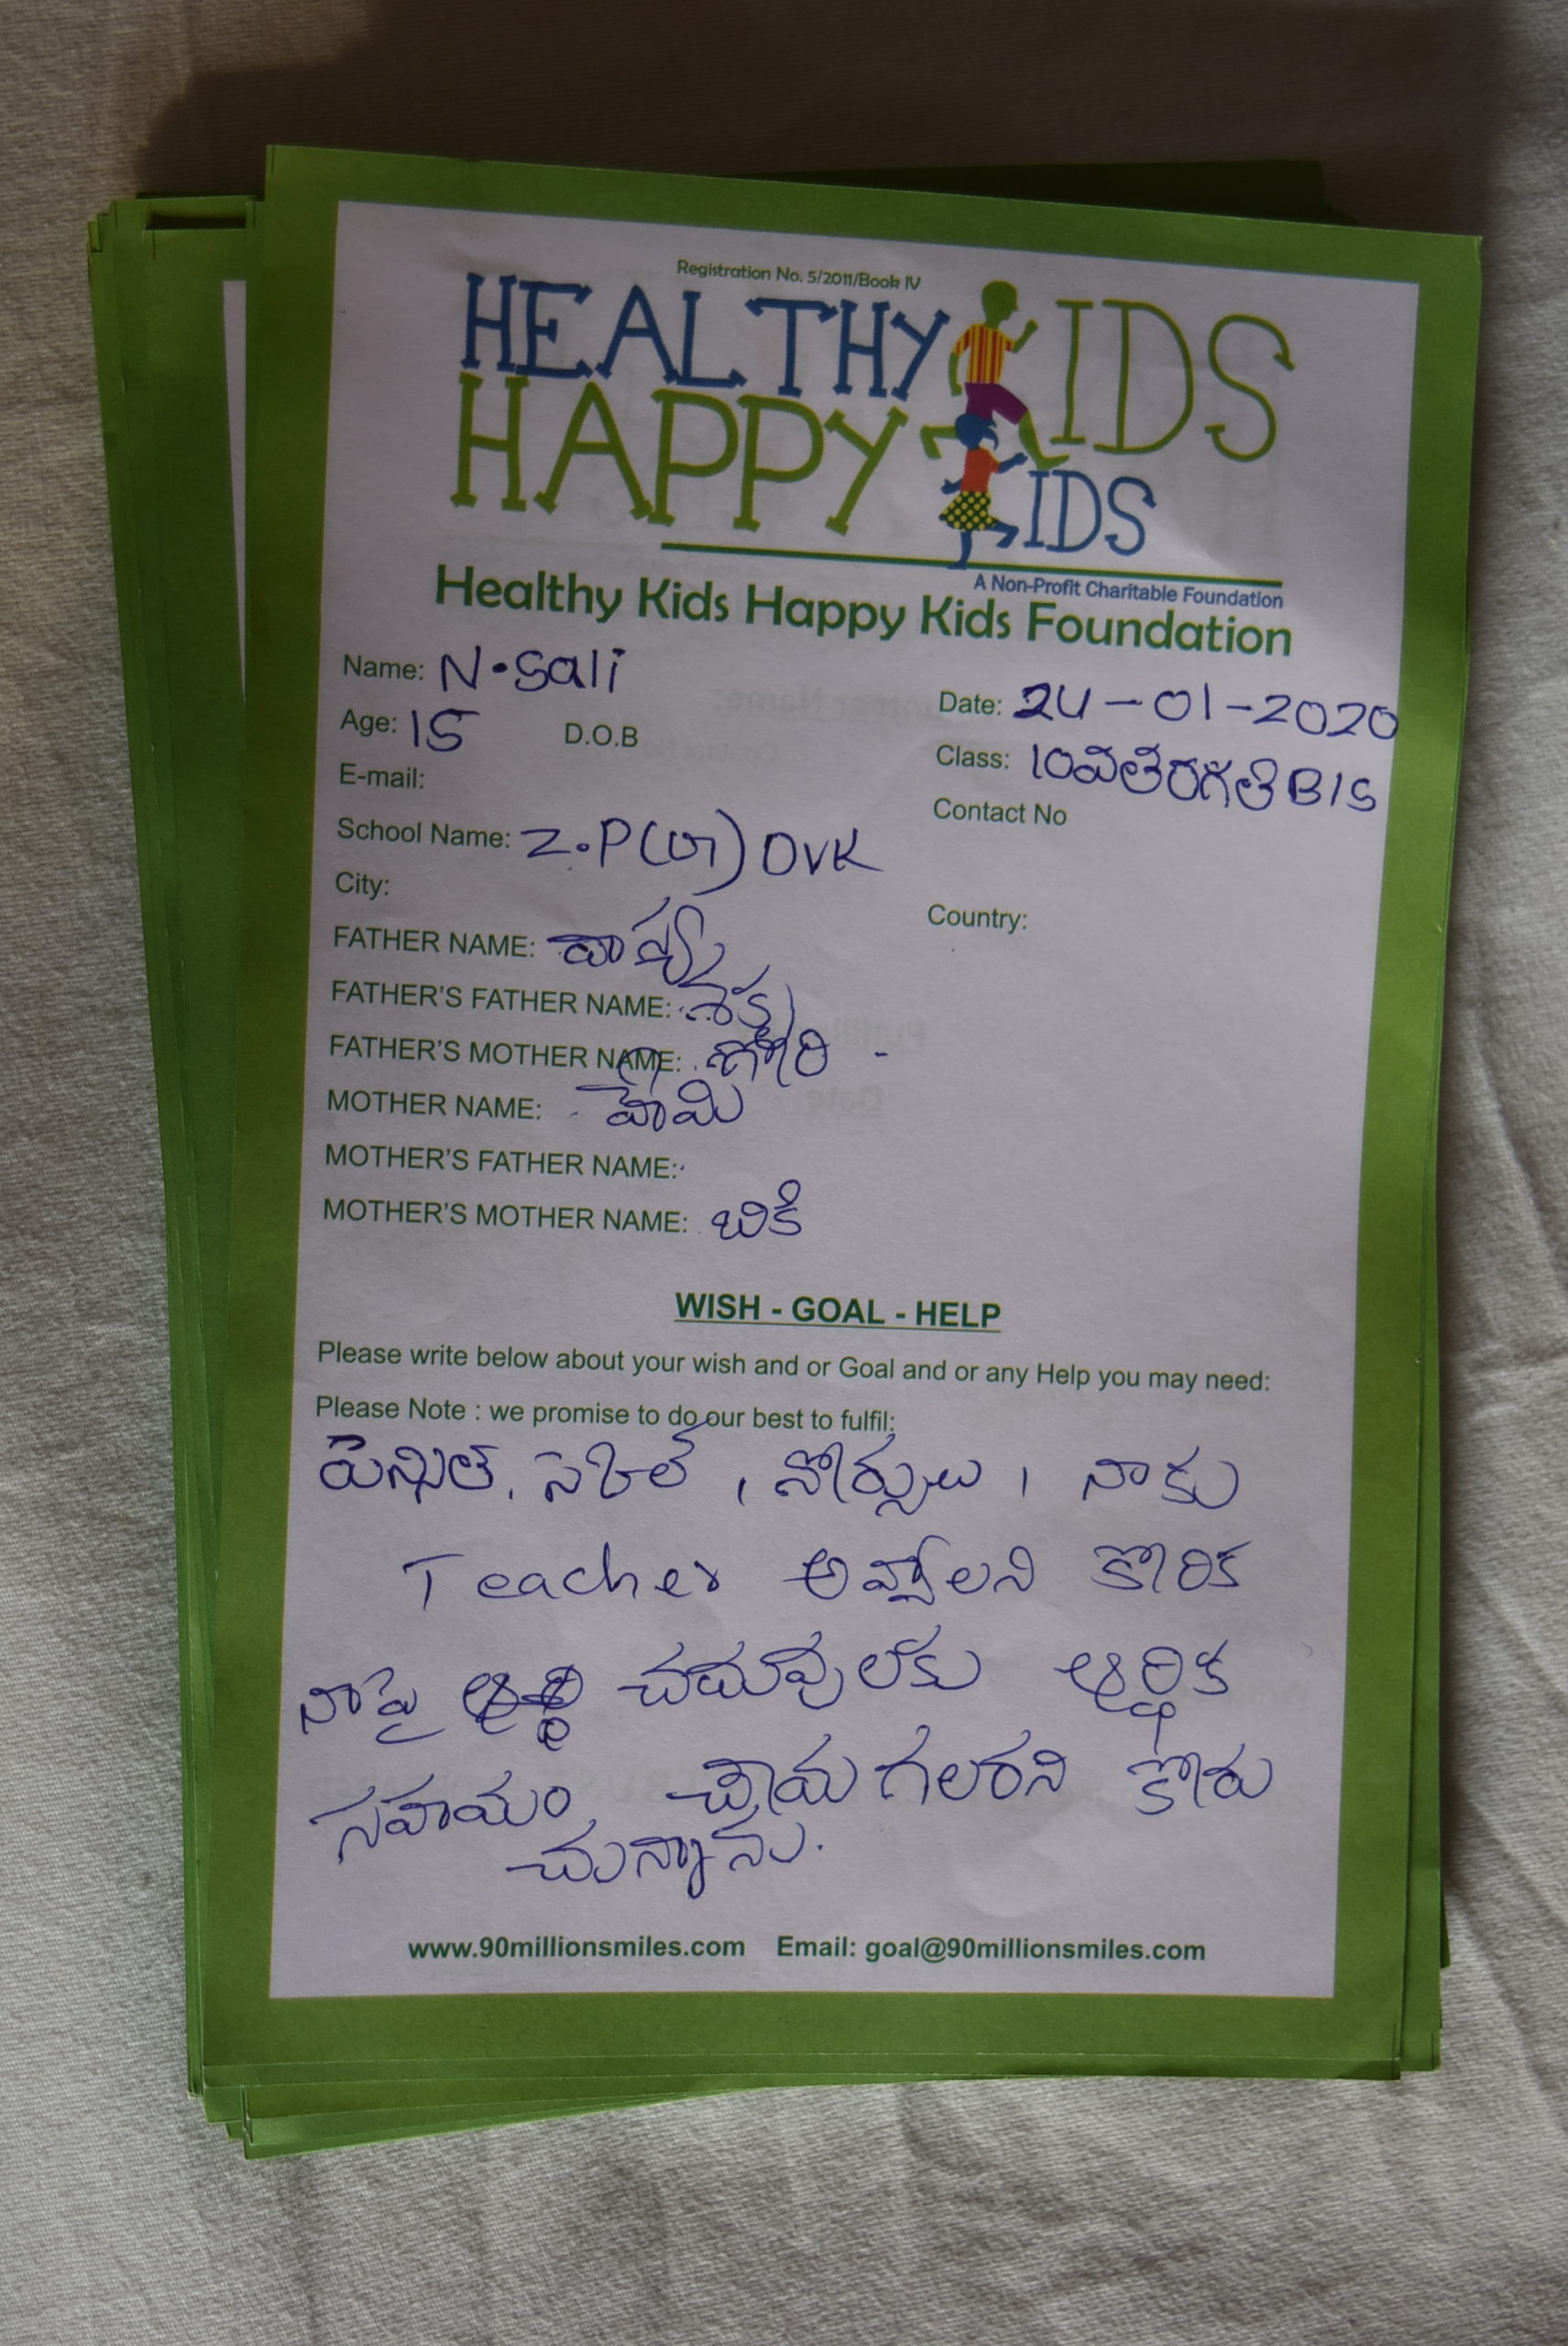 Registration No. 5/2011/Book IV
HEALTHY KIDS
HAPPY KIDS
A Non-Profit Charitable Foundation
Healthy Kids Happy Kids Foundation
Name: N.Sali
Date: 24-01-2020
Age: 15 D.O.B
Class: 10వతరగతి B/S
E-mail:
Contact No
School Name: Z.P(G) DVK
City:
Country:
FATHER NAME:
FATHER'S FATHER NAME:
FATHER'S MOTHER NAME: గౌరి
MOTHER NAME: హేమి
MOTHER'S FATHER NAME:
MOTHER'S MOTHER NAME: బికి
WISH - GOAL - HELP
Please write below about your wish and or Goal and or any Help you may need:
Please Note : we promise to do our best to fulfil:
పెన్సిల్, సైకిల్, నోట్సులు, నాకు
Teacher అవ్వాలని కోరిక
నాపై చదువులకు ఆర్థిక
సహయం గలరని కోరు
చున్నాను.
www.90millionsmiles.com Email: goal@90millionsmiles.com